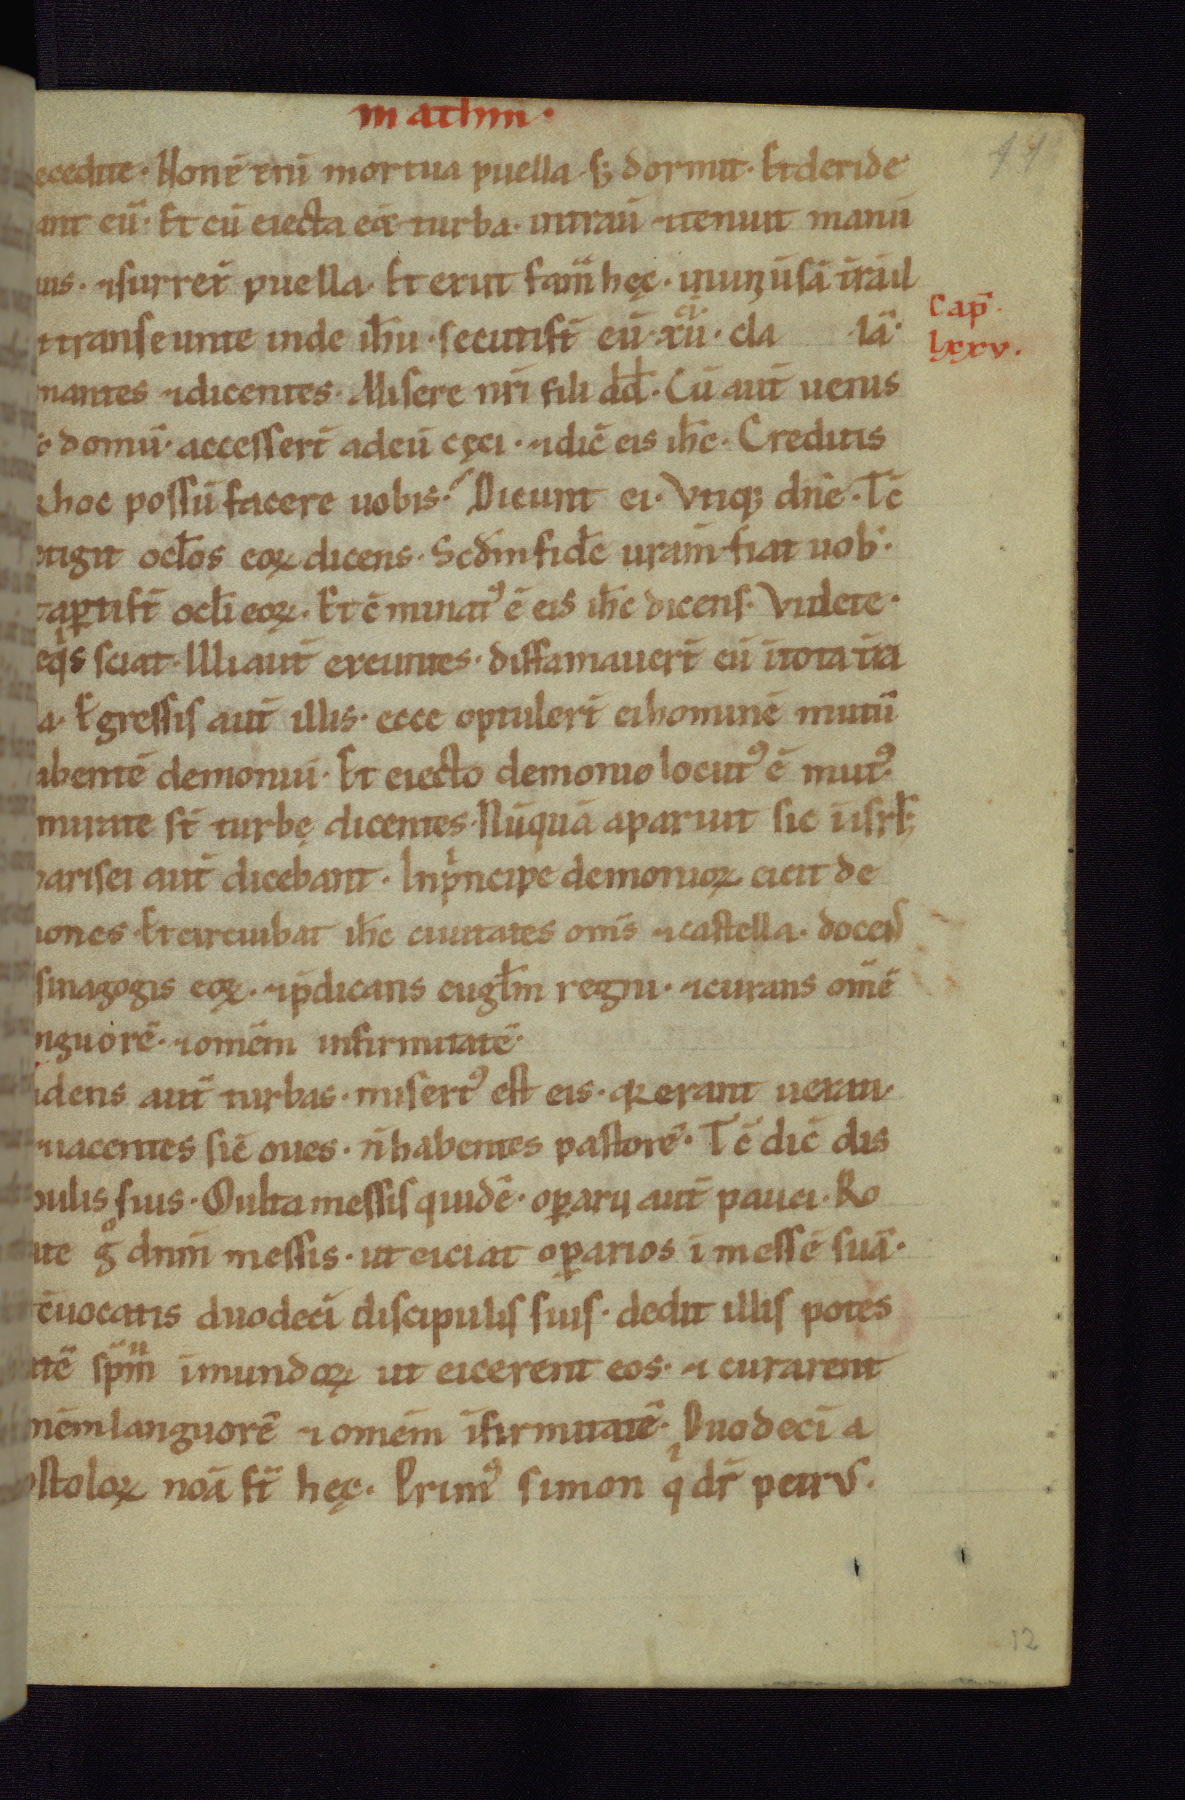 mathm·
ecedite· Non ē eni mortua puella· sꝫ dormit· Et deride
ant eū· Et cū eiecta eēt turba· intrauⷮ ⁊ tenuit manū
ius· ⁊ surrex̄ puella· Et exiit fama hęc· in uniuⷡsā trā il
lā·
t transeunte inde ih̄u· secuti sт̄ eū· cęi· cla
Cap̄·
lxxv·
mantes ⁊ dicentes· Misere nr̄i fili dd̄· Cū aut̄ uenis
domū· accesser̄t ad eū cęci· ⁊ dic̄ eis ih̄c· Creditis
hoc possū facere uobis· Dicunt ei· Vtiqꝫ dn̄e· Tc̄
etigit ocl̄os eoꝝ dicens· Scd̄m fidē uram̄ fiat uob·
t aꝑti st̄ ocl̄i eoꝝ· Et cōminatꝰ ē eis ih̄c dicens· Videte·
e qͥs sciat· Illi aut̄ exeuntes· diffamauer̄t eū ī tota tr̄a
a· Egressis aut̄ illis· ecce optuler̄t ei hominē mutū
abentē demoniū· Et eiecto demonio locutꝰ ē mutꝰ
mirate st̄ turbę dicentes· Nūquā aparuit sic ī isrl̄·
arisei aut̄ dicebant· In pͥncipe demonioꝝ eicit de
ones· Et circuibat ih̄c ciuitates om̄s ⁊ castella· docens
sinagogis eoꝝ· ⁊ p̄dicans eugl̄m regni· ⁊ curans om̄ē
nguorē· ⁊ omēm infirmitatē·
idens aut̄ turbas· misertꝰ est eis· qꝛ erant uexati·
⁊ iacentes sic̄ oues· n̄ habentes pastorē· Tc̄ dic̄ dis
pulis suis· Multa messis quidē· oꝑarii aut̄ pauci· Ro
ate gͦ dnm̄ messis· ut eiciat oꝑarios ī messē suā·
cōuocatis duodeci discipulis suis· dedit illis potes
tē spm̄ imundoꝝ ut eicerent eos· ⁊ curarent
mēm languorē ⁊ omēm īfirmitatē· Duodeci a
ostoloꝝ noā st̄ hęc· Primꝰ simon qͥ dr̄ petrus·
12